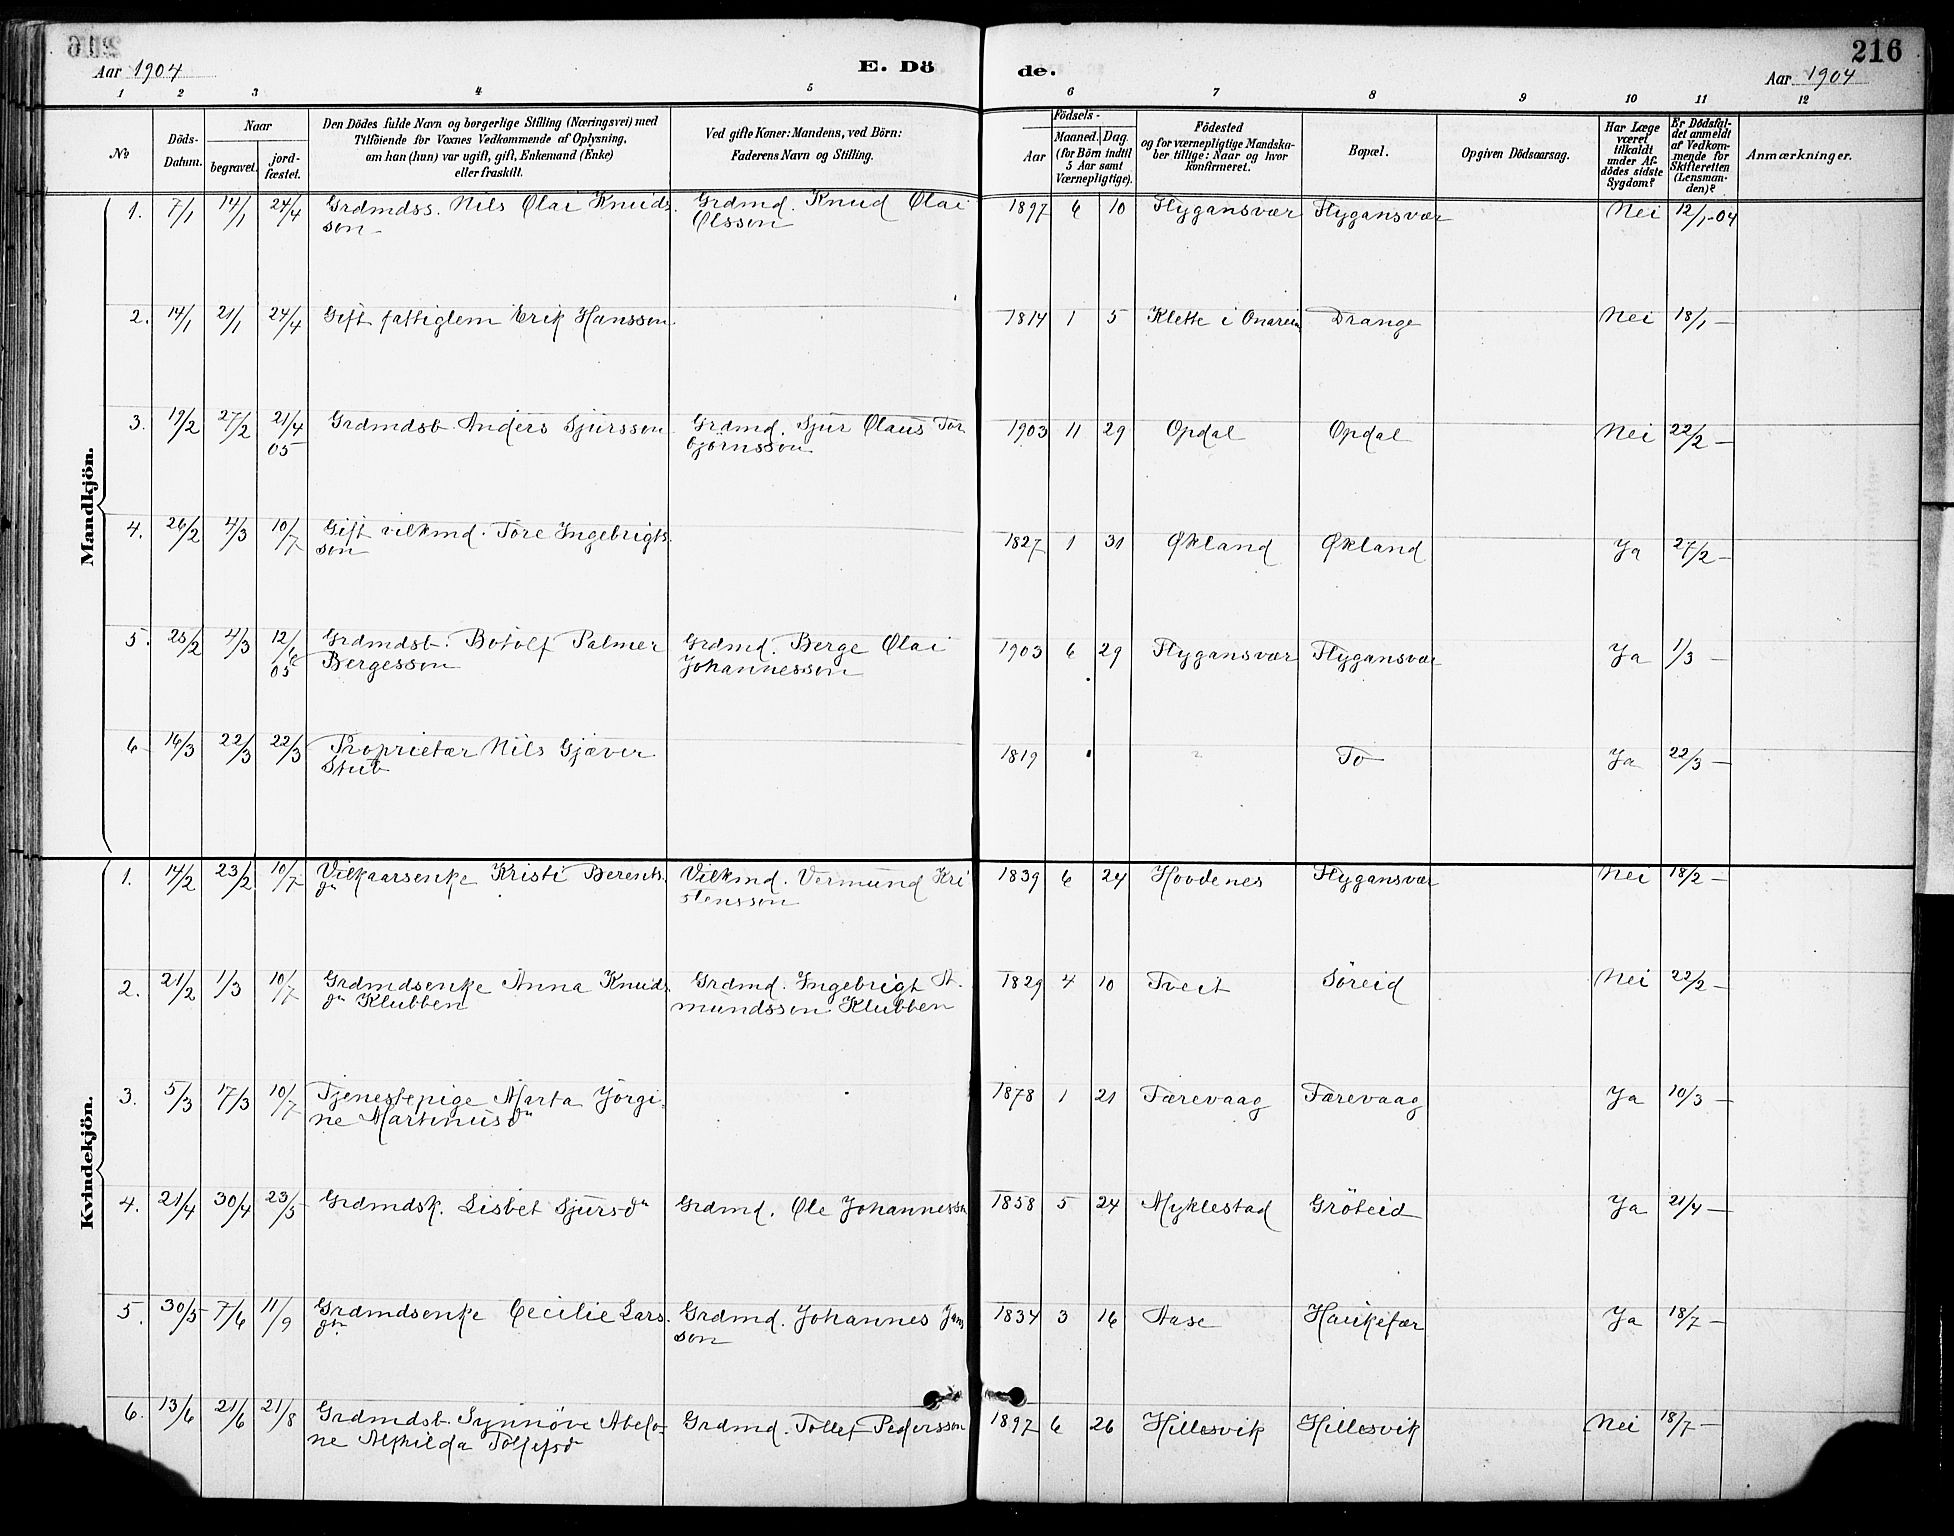 216
Aar 1904 E. Dö de. Aar 1904
1 2 3 4 5 6 7 8 9 10 11 12
No
Döds-Datum.
Naar
begravet.
jord-fæstet.
Den Dödes fulde Navn og borgerlige Stilling (Næringsvei) med
Tilföiende for Voxnes Vedkommende af Oplysning,
om han (hun) var ugift, gift, Enkemand (Enke)
eller fraskilt.
Ved gifte Koner: Mandens, ved Börn:
Faderens Navn og Stilling.
Födsels-
Aar
Maaned. Dag
(for Börn indtil
5 Aar samt
Værnepligtige).
Födested
og for værnepligtige Mandska-
ber tillige: Naar og hvor
konfirmeret.
Bopæl.
Opgiven Dödsaarsag.
Har Læge
været
tilkaldt
under Af-
dödes sidste
Sygdom?
Er Dödsfal-
det anmeldt
af Vedkom-
mende for
Skifteretten
(Lensman-
den)?
Anmærkninger.
Mandkjön.
1. 7/1 14/1 24/4 Grdmdss. Nils Olai Knuds- Grdmd. Knud Olai 1897 6 10 Flygansvær Flygansvær Nei 12/1-04
son Olsson
2. 14/1 21/1 24/4 Gift fattiglem Erik Hansson 1814 1 5 Klette i Onarei Drange Nei 18/1 –
3. 19/2 27/2 21/4 Grdmdsb. Anders Sjursson Grdmd. Sjur Olaus Tor 1903 11 29 Opdal Opdal Nei 22/2 –
05 bjørnsson
4. 26/2 4/3 10/7 Gift vilkmd. Tore Ingebrigts- 1827 1 31 Økland Økland Ja 27/2 –
son
5. 25/2 4/3 12/6 Grdmdsb. Botolf Palmer Grdmd. Berge Olai 1903 6 29 Flygansvær Flygansvær Ja 1/3 –
05 Bergesson Johannesson
6 16/3 22/3 22/3 Proprietær Nils Gjæver 1819 To Ja 22/3 –
Stub
Kvindekjön.
1. 14/2 23/2 10/7 Vilkaarsenke Kristi Berents- Vilkmd. Vermund Kri 1839 6 24 Hovdenes Flygansvær Nei 18/2 –
dr stensson
2. 21/2 1/3 10/7 Grdmdsenke Anna Knuds- Grdmd. Ingebrigt A- 1829 4 10 Tveit Söreid Nei 22/2 –
dr Klubben mundsson Klubben
3. 5/3 17/3 10/7 Tjenestepige Marta Jörgi- 1878 1 21 Færevaag Færevaag Ja 10/3 –
ne Martinusdr
4. 21/4 30/4 23/5 Grdmdsk. Lisbet Sjursdr Grdmd. Ole Johannesson 1858 5 24 Myklestad Gröteid Ja 21/4 –
5. 30/5 7/6 11/9 Grdmdsenke Cecilie Lars- Grdmd. Johannes Jans 1834 3 16 Aase Haukefær Ja 18/7 –
dr son
6. 13/6 21/6 21/8 Grdmdsb. Synnöve Abelo- Grdmd. Tollef Pedersson 1897 6 26 Hillesvik Hillesvik Nei 18/7 –
ne Alfhilda Tollefsd